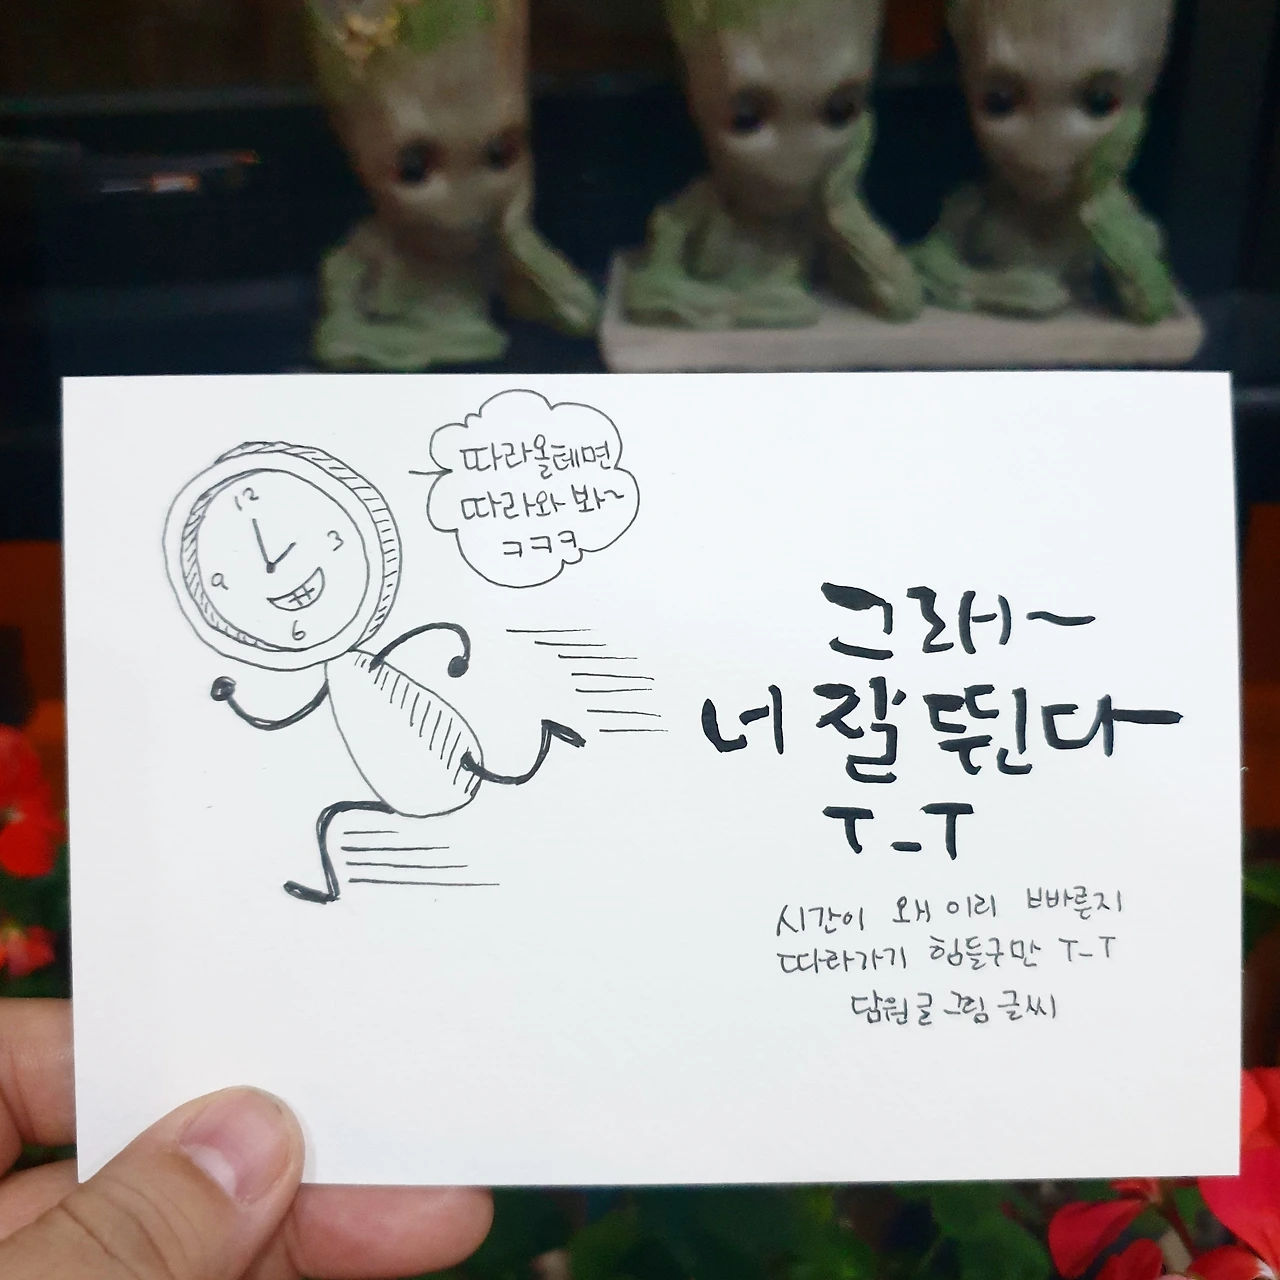 12
3
9
6
따라올테면
따라와 봐~
ㅋㅋㅋ
그래~
너 잘 뛴다
ㅜ_ㅜ
시간이 왜 이리 빠른지
따라가기 힘들구만 ㅜ_ㅜ
담원 글 그림 글씨